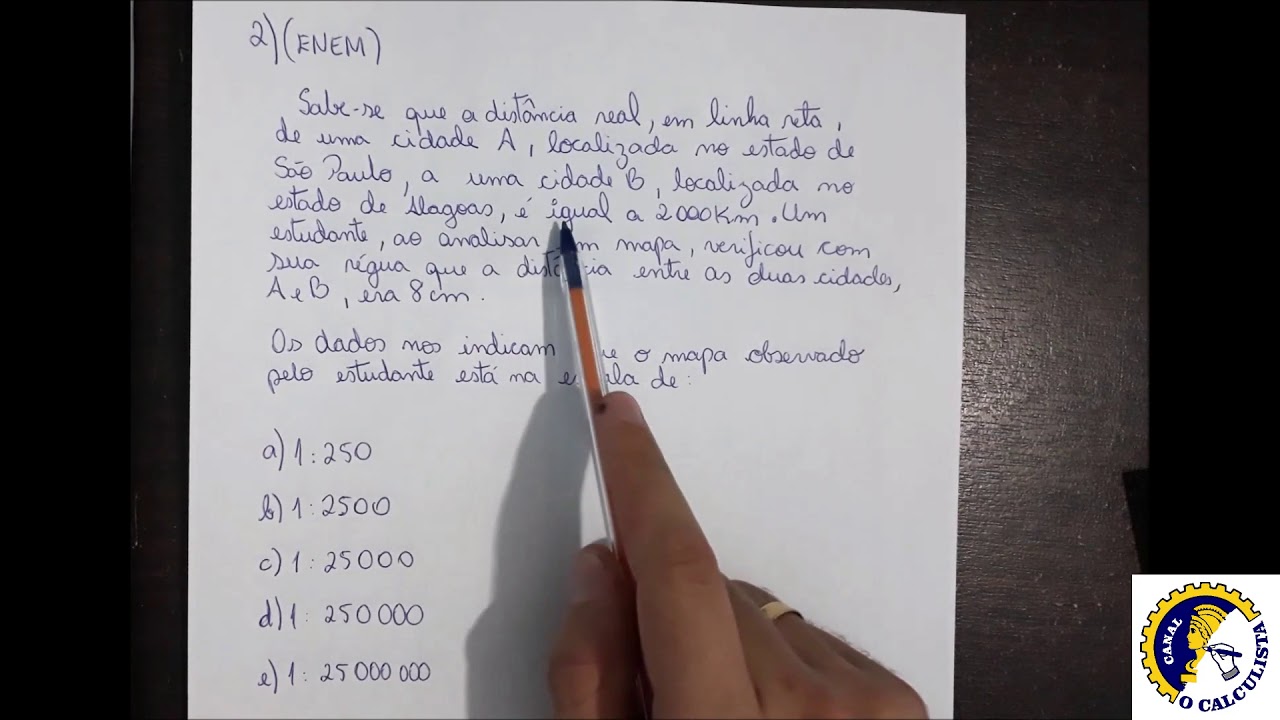 2) (ENEM)
Sabe-se que a distância real, em linha reta,
de uma cidade A, localizada no estado de
São Paulo, a uma cidade B, localizada no
estado de Alagoas, é igual a 2000Km. Um
estudante, ao analisar mapa, verificou com
sua régua que a entre as duas cidades,
A e B, era 8cm.
Os dados nos indicam o mapa observado
pelo estudante está na de:
a) 1:250
b) 1:2500
c) 1:25000
d) 1:250000
e) 1:25000000
CANAL
O CALCULISTA